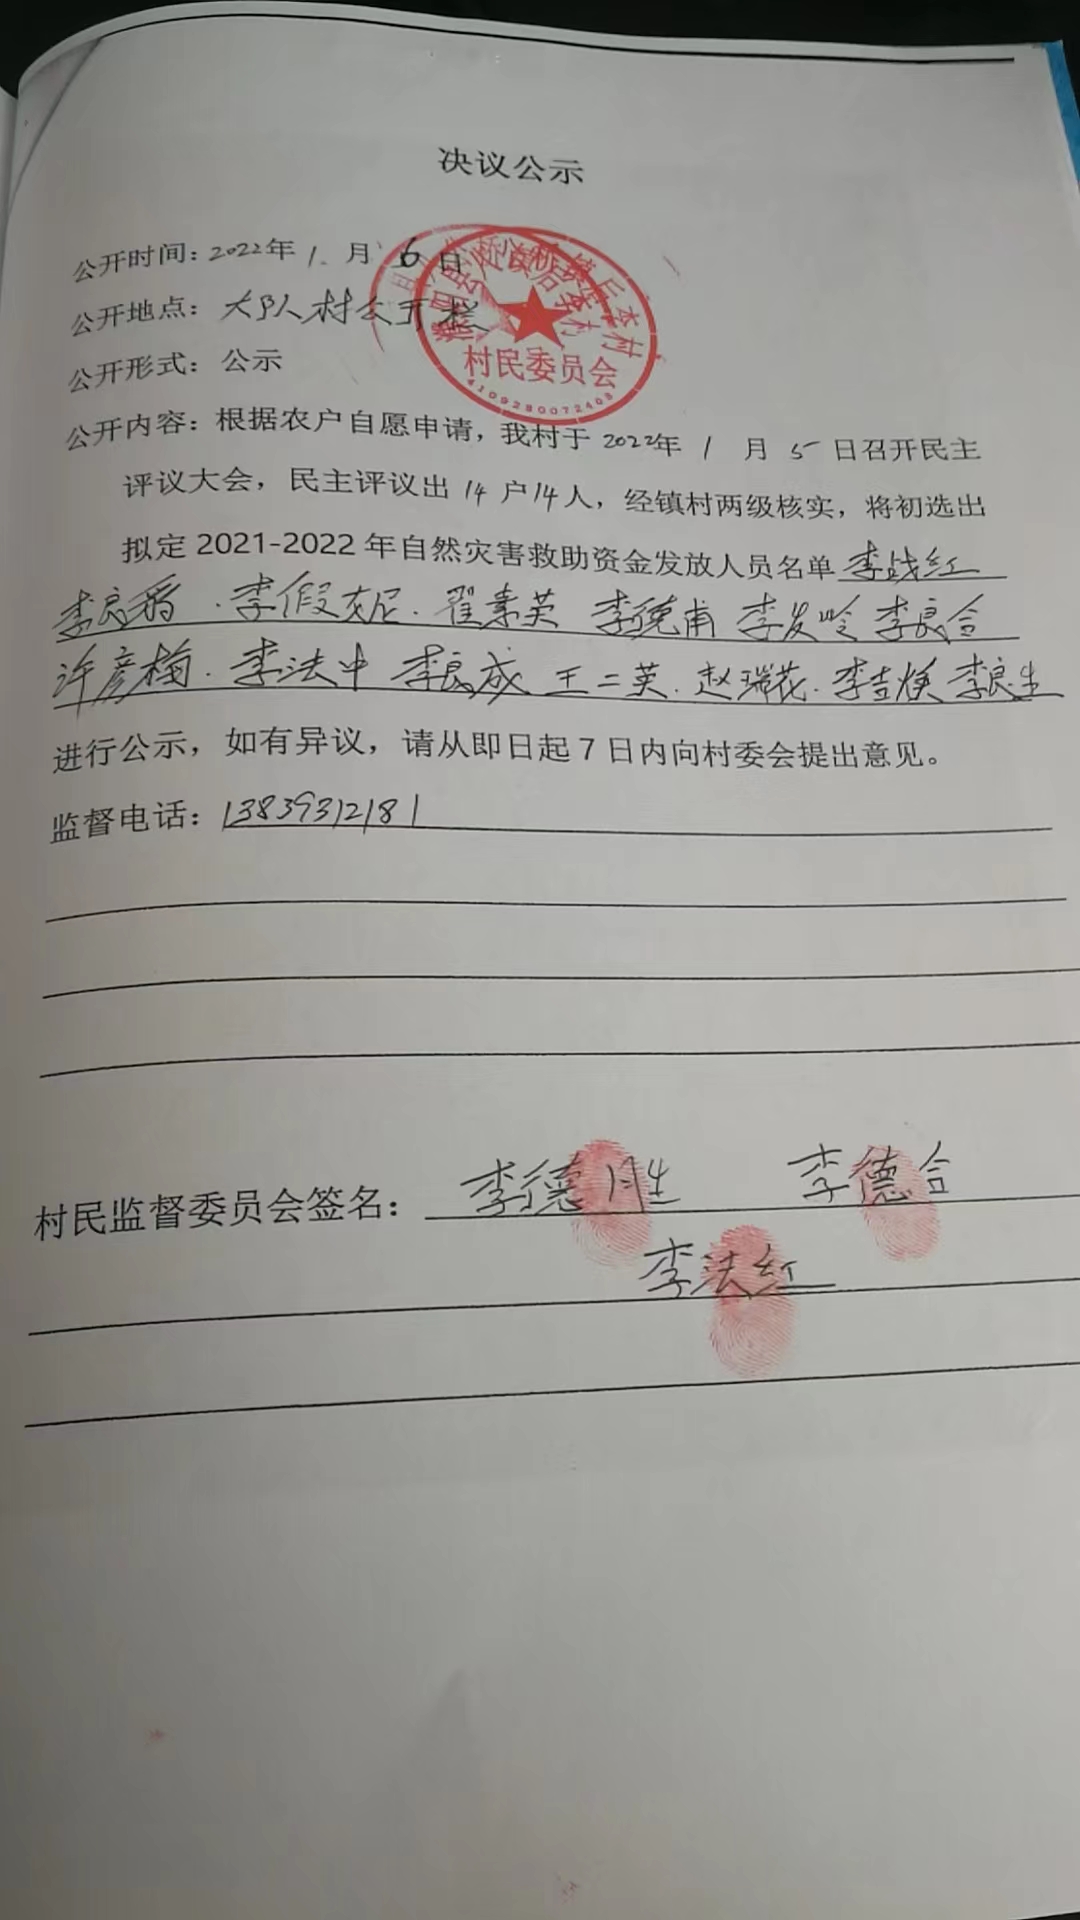 决议公示
公开时间：2022年1月6日
公开地点：大队村公开栏
公开形式：公示
村民委员会
4109280072403
公开内容：根据农户自愿申请，我村于2022年1月5日召开民主
评议大会，民主评议出14户14人，经镇村两级核实，将初选出
拟定2021-2022年自然灾害救助资金发放人员名单李战红
李良 . 李假妮. 翟素英 李德甫 李发岭 李良合
许彦梅. 李法中 李良成 王二英. 赵瑞花. 李吉焕 李良生
进行公示，如有异议，请从即日起7日内向村委会提出意见。
监督电话：13839312181
村民监督委员会签名：李德胜 李德合
李法红